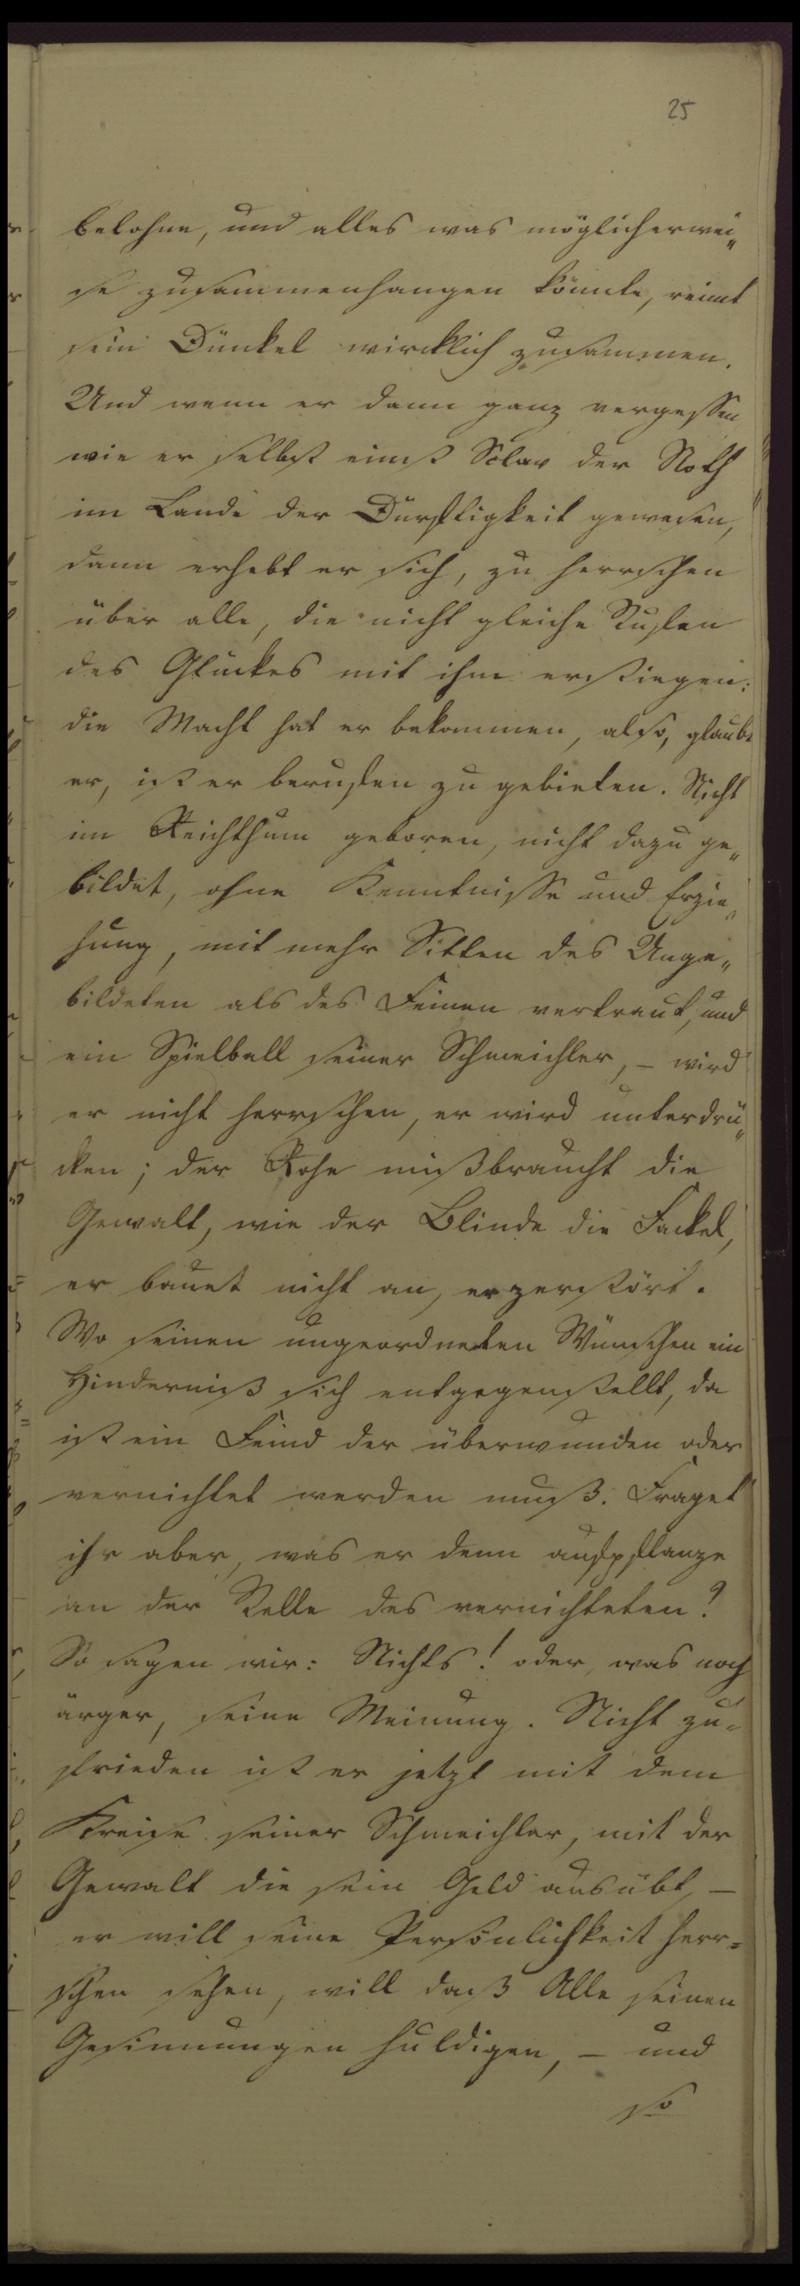 25
belohne, und alles was möglicherwei„
se zusammenhangen könnte, reimt
sein Dünkel wircklich zusammen.
Und wenn er dann ganz vergessen
wie er selbst einst Sclav der Noth
im Lande der Dürftigkeit gewesen,
dann erhebt er sich, zu herrschen
über alle, die nicht gleiche Stufen
des Glückes mit ihm erstiegen:
die Macht hat er bekommen, also, glaubt
er, ist er berufen zu gebieten. Nicht
im Reichthum geboren, nicht dazu ge„
bildet, ohne Kenntnisse und Erzie„
hung, mit mehr Sitten des Unge„
bildeten als des Feinen vertraut, und
ein Spielball seiner Schmeichler, – wird
er nicht herrschen, er wird unterdrü„
cken; der Rohe mißbraucht die
Gewalt, wie der Blinde die Fackel,
er bauet nicht an, er zerstört.
Wo seinen ungeordneten Wünschen ein
Hinderniß sich entgegenstellt, da
ist ein Feind der überwunden oder
vernichtet werden muß. Fraget
ihr aber, was er denn aufpflanze
an der Stelle des vernichteten?
So sagen wir: Nichts! oder, was noch
ärger, seine Meinung. Nicht zu=
frieden ist er jetzt mit dem
Kreise seiner Schmeichler, mit der
Gewalt die sein Geld ausübt, –
er will seine Persönlichkeit herr=
schen sehen, will daß Alle seinen
Gesinnungen huldigen, – und
so